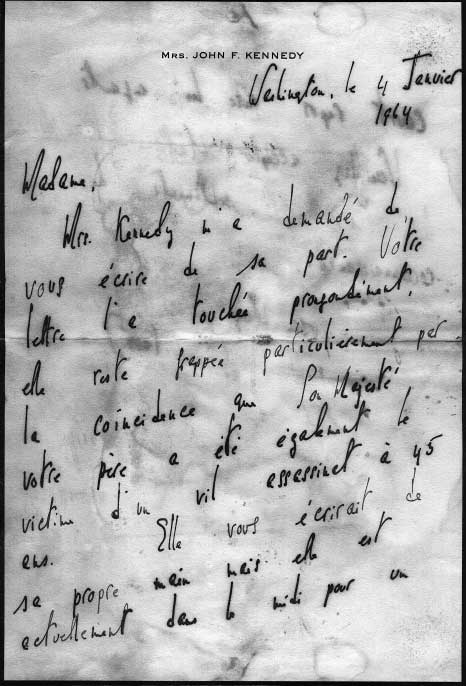 MRS. JOHN F. KENNEDY
Washington, le 4 Janvier
1964
Madame,
Mrs. Kennedy m'a demandé de
vous écrire de sa part. Votre
lettre l'a touchée profondément,
elle reste frappée particulièrement par
la coincidence que Son Majesté
votre père a été également le
victime d'un vil assassinat à 45
ans. Elle vous écrirait de
sa propre main mais elle est
actuellement dans le midi pour un